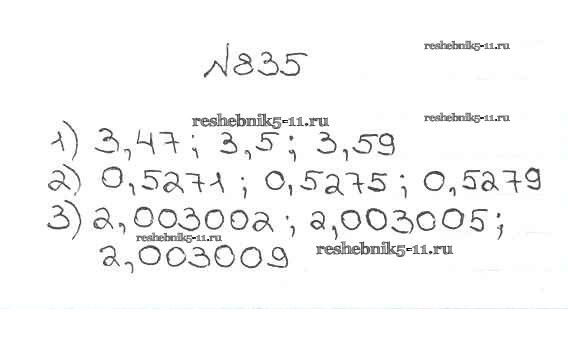 reshebnik5-11.ru
№835
reshebnik5-11.ru
reshebnik5-11.ru
1) 3,47; 3,5; 3,59
2) 0,5271; 0,5275; 0,5279
3) 2,003002; 2,003005;
reshebnik5-11.ru
2,003009
reshebnik5-11.ru